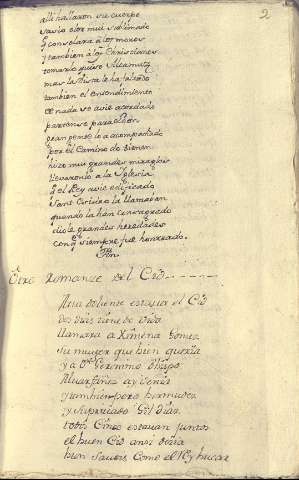 2
alli hallaron su cuerpo
y consolara a los moros
y tambien a los Christianos
tomarlo quiso
mas la vista le ha faltado
tambien el entendimiento
de nada se avie acordado
partense para
gran gente lo a acompañado
por el Camino do vienen
hizo mui grandes miraglos
llevaronlo a la Yglesia
q̃ el Rey avie edificado
Sant la llamavan
quando la han consagrado
diole grandes heredades
con q̃ siempre fue honrrado.
Fin.
Otro Romanze del Cid
doliente estava el Cid
dos dias tiene de vida
llamara a Ximena Gomez
su muger que bien queria
y a Dn Geronimo Obispo
Alvar Fañez ay venia
y tambien pero bermudez
y su privado Gil diaz
todos Cinco estavan juntos
el buen Cid ansi dezia
bien saveis Como el Rey bucar